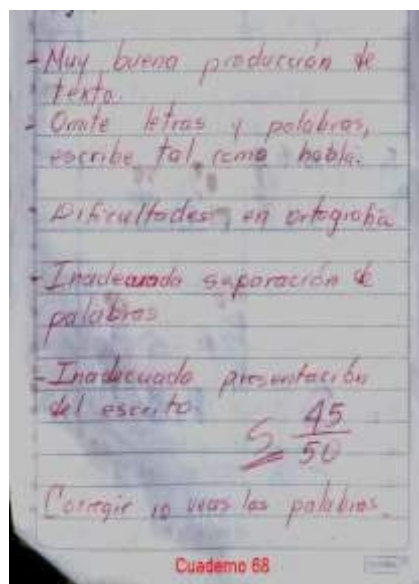 - Muy buena producción de
texto.
- Omite letras y palabras,
escribe tal como habla.
- Dificultades en ortografía
- Inadecuada separación de
palabras
- Inadecuada presentación
del escrito.
S 45/50
Corregir 10 veces las palabras.
Cuaderno 68